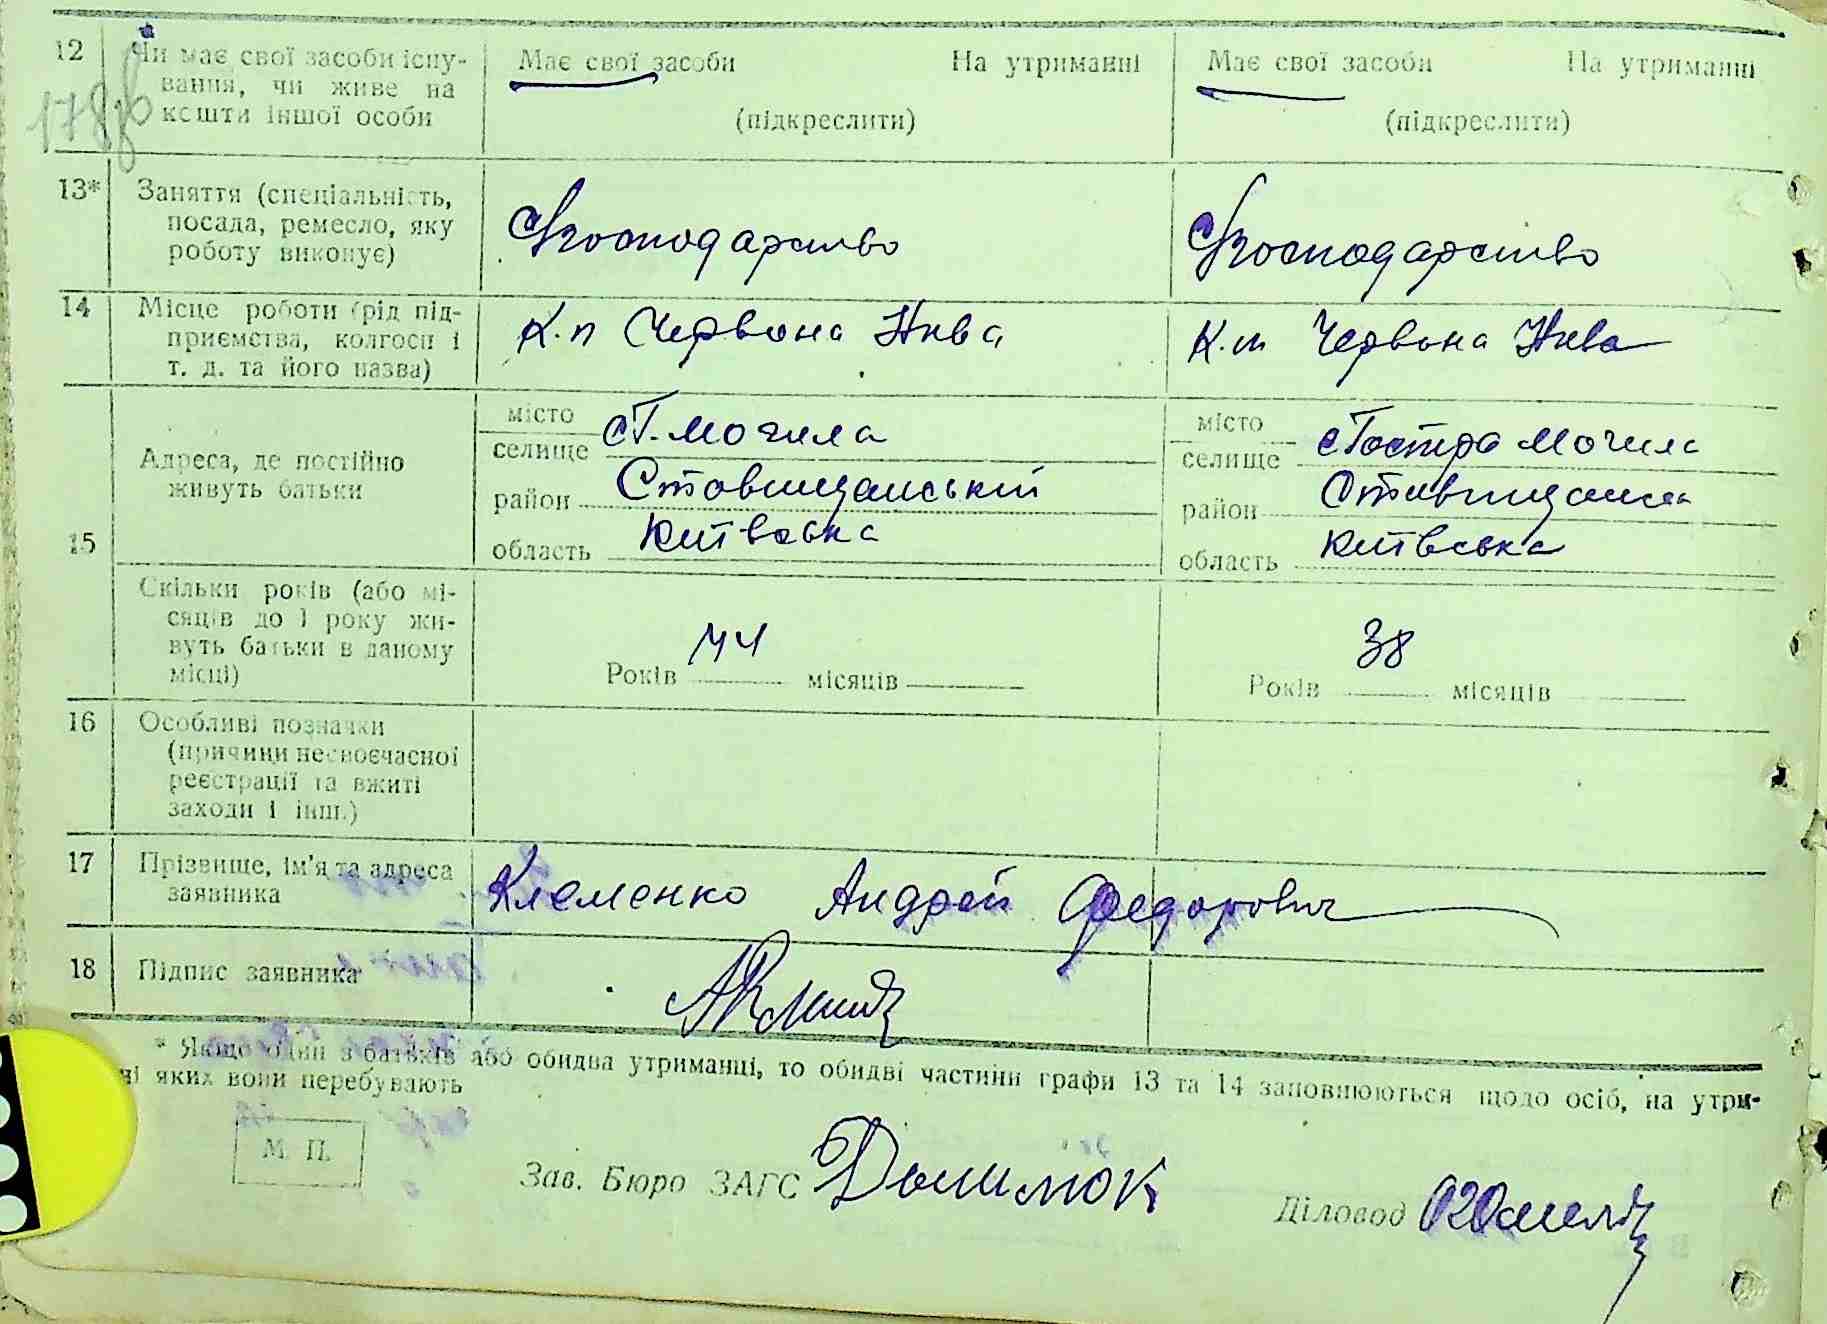 12 Чи має свої засоби існу-
вання, чи живе на
кошти іншої особи
Має свої засоби На утриманні
(підкреслити)
Має свої засоби На утриманні
(підкреслити)
178
13* Заняття (спеціальність,
посада, ремесло, яку
роботу виконує)
Господарство
Господарство
14 Місце роботи (рід під-
приємства, колгосп і
т. д. та його назва)
К.п Червона Нива
К.п Червона Нива
15
Адреса, де постійно
живуть батьки
місто
селище сТ. Могила
район Ставищанській
область Київська
місто
селище с Гостра Могила
район Ставищанськ
область Київська
Скільки років (або мі-
сяців до 1 року жи-
вуть батьки в даному
місці)
Років 44 місяців
Років 38 місяців
16 Особливі позначки
(причини несвоєчасної
реєстрації та вжиті
заходи і інш.)
17 Прізвище, ім'я та адреса
заявника
Клеменко Андрей Федорович
18 Підпис заявника
* Якщо один з батьків або обидва утриманні, то обидві частини графи 13 та 14 заповнюються щодо осіб, на утри-
ні яких вони перебувають
М. П.
Зав. Бюро ЗАГС
Діловод